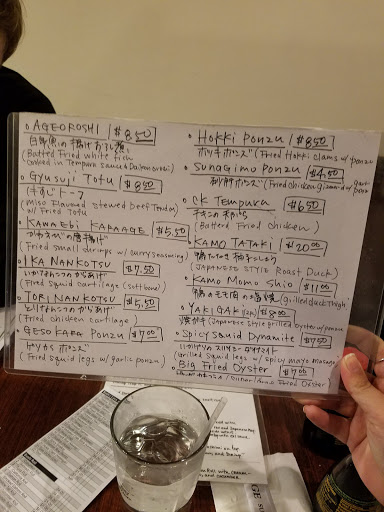 AGEOROSHI $8.50
(Batted Fried white fish
cooked in Tempura sauce & Daikon oroshi)
Gyusuji Tofu $8.50
(Miso Flavored Stewed Beef Tendon)
w/ Fried Tofu
KAWAEBI KARAAGE $5.50
(Fried small shrimps w/ curry seasoning)
IKA NANKOTSU $7.50
いかなんこつのからあげ
(Fried squid cartilage (soft bone))
TORI NANKOTSU $5.50
とりなんこつのからあげ
(Fried chicken cartilage)
GESO KARA PONZU $7.00
ゲソから ポンズ
(Fried squid legs w/ garlic ponzu)
HOKKI PONZU $8.50
ホッキポンズ (Fried Hokki clams w/ ponzu)
SUNAGIMO PONZU $4.50
砂肝ポンズ (Fried chicken gizzard w/ garlic ponzu)
CK TEMPURA $6.50
チキンの天ぷら
(Batterd Fried chicken)
KAMO TATAKI $20.00
(JAPANESE STYLE Roast Duck)
KAMO MOMO SHIO $11.00
鴨のモモ肉の塩焼 (grilled duck thigh)
YAKI GAKI $8.00
(Japanese style grilled oyster w/ ponzu)
Spicy Squid Dynamite $7.50
(Grilled squid legs w/ spicy mayo masago)
Big Fried Oyster $7.00